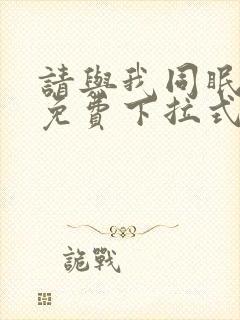 請與我同眠
免費下拉式
詭戰